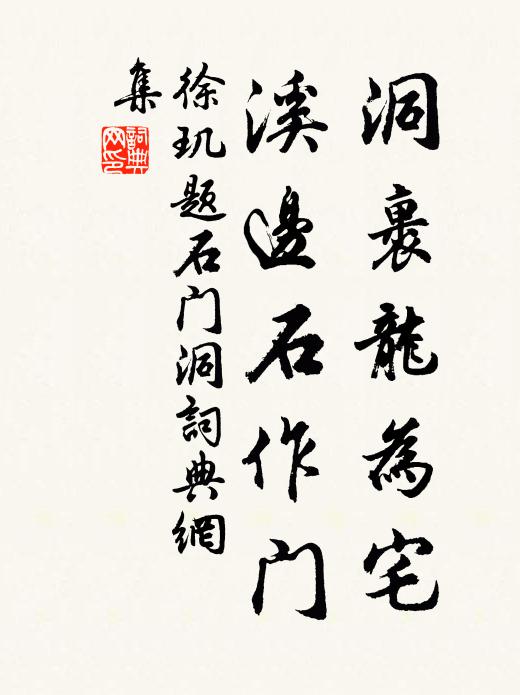 洞裏龍為宅
溪邊石作门
徐玑题石门洞詞典網
集
詞典網印